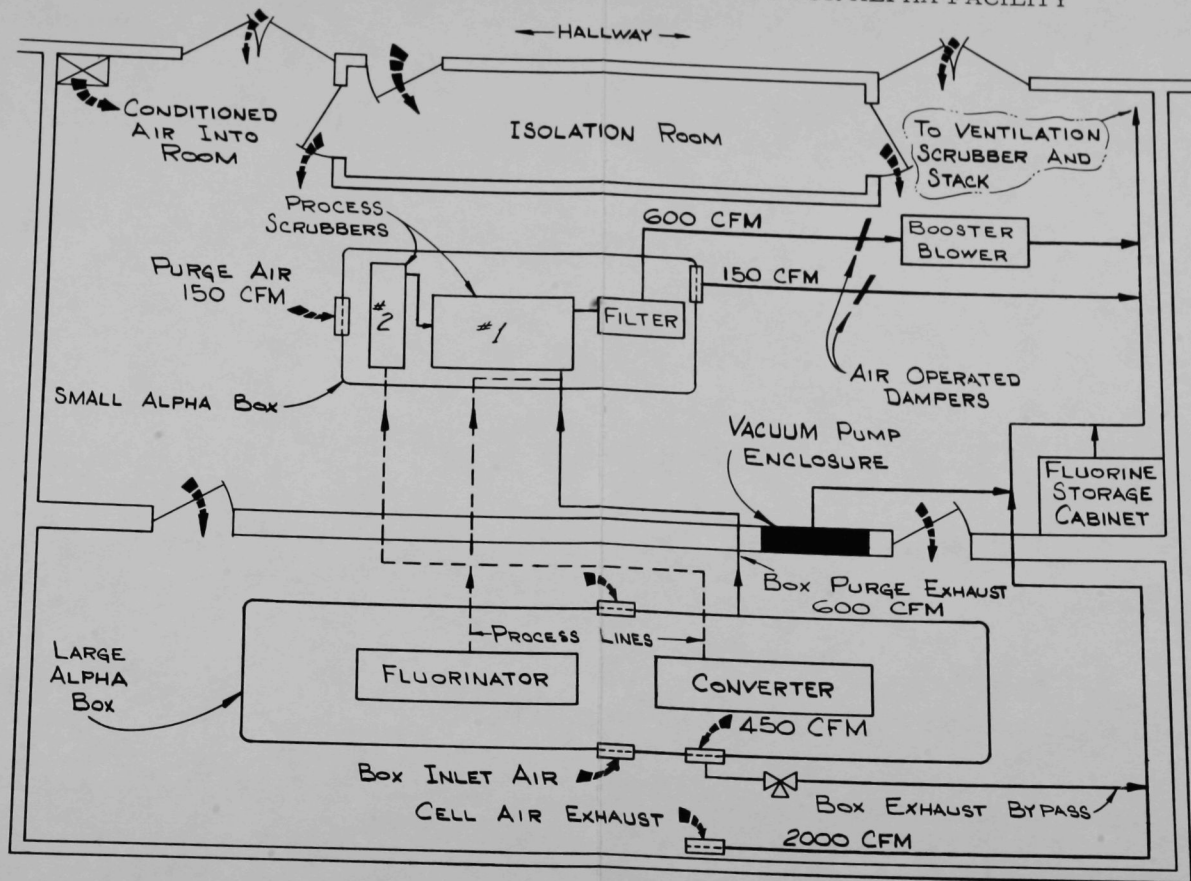 ALPHA FACILITY
HALLWAY
CONDITIONED
AIR INTO
ROOM
ISOLATION ROOM
TO VENTILATION
SCRUBBER AND
STACK
PROCESS
SCRUBBERS
600 CFM
BOOSTER
BLOWER
PURGE AIR
150 CFM
150 CFM
#2
#1
FILTER
AIR OPERATED
DAMPERS
SMALL ALPHA BOX
VACUUM PUMP
ENCLOSURE
FLUORINE
STORAGE
CABINET
BOX PURGE EXHAUST
600 CFM
PROCESS LINES
LARGE
ALPHA
BOX
FLUORINATOR
CONVERTER
450 CFM
BOX INLET AIR
BOX EXHAUST BYPASS
CELL AIR EXHAUST
2000 CFM